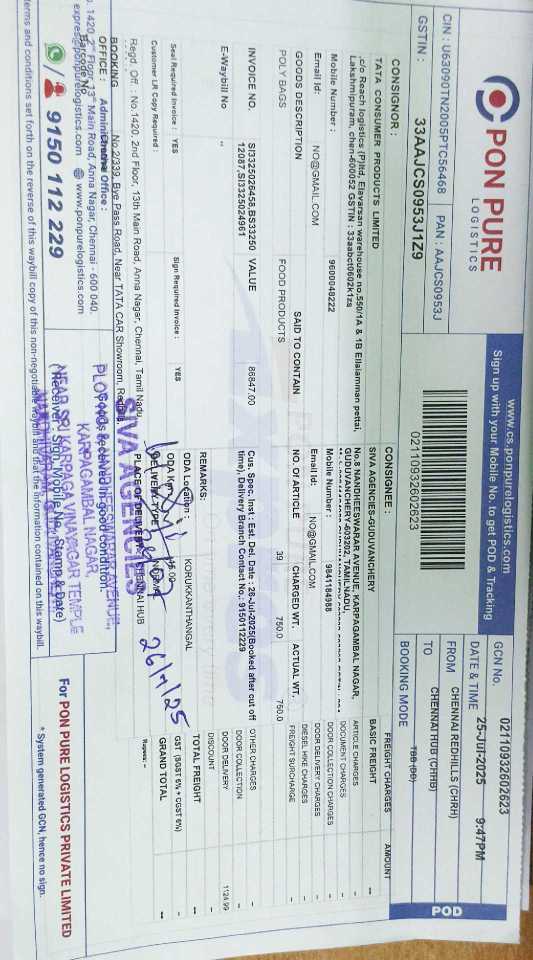 PON PURE
LOGISTICS
CIN : U63090TN2005PTC56468 PAN : AAJCS0953J
GSTIN : 33AAJCS0953J1Z9
www.cs.ponpurelogistics.com
Sign up with your Mobile No. to get POD & Tracking
02110932602623
GCN No. 02110932602623
DATE & TIME 25-Jul-2025 9:47PM
FROM CHENNAI REDHILLS (CHRH)
TO CHENNAI HUB (CHHB)
BOOKING MODE
POD
CONSIGNOR :
TATA CONSUMER PRODUCTS LIMITED
c/o Reach logistics (P)ltd, Elavarsan warehouse no.550/1A & 1B Ellaiamman pettai,
Lakshmipuram, chen-600052 GSTIN : 33aabct0602k1zs
Mobile Number : 9600048222
Email Id: NO@GMAIL.COM
CONSIGNEE :
SIVA AGENCIES-GUDUVANCHERY
No.8 NANDHEESWARAR AVENUE, KARPAGAMBAL NAGAR,
GUDUVANCHERY-603202, TAMILNADU,
Mobile Number : 9841184988
Email Id: NO@GMAIL.COM
GOODS DESCRIPTION SAID TO CONTAIN NO. OF ARTICLE CHARGED WT. ACTUAL WT.
POLY BAGS FOOD PRODUCTS 39 750.0 750.0
INVOICE NO. SI3325026458,BS33250
12087,SI3325024961
VALUE 86847.00
E-Waybill No ..
Cus. Spec. Inst : Est. Del. Date : 26-Jul-2025(Booked after cut off
time), Delivery Branch Contact No.: 9150112229
Seal Required Invoice : YES Sign Required Invoice : YES
Customer LR Copy Required :
REMARKS:
ODA Location : KORUKKANTHANGAL
ODA Km
DELIVERY TYPE
PLACE OF DELIVERY
FREIGHT CHARGES AMOUNT
BASIC FREIGHT --
ARTICLE CHARGES
DOCUMENT CHARGES
DOOR COLLECTION CHARGES
DOOR DELIVERY CHARGES
DIESEL HIKE CHARGES
FREIGHT SURCHARGE
OTHER CHARGES
DOOR COLLECTION
DOOR DELIVERY 1124.99
DISCOUNT
TOTAL FREIGHT --
GST (SGST 6% + CGST 6%) --
GRAND TOTAL --
Rupees: --
26/7/25
Regd. Off : No.1420, 2nd Floor, 13th Main Road, Anna Nagar, Chennai, Tamil Nadu
BOOKING No.2/339, Bye Pass Road, Near TATA CAR Showroom,
OFFICE :
Administrative Office :
. 1420, 2nd Floor, 13th Main Road, Anna Nagar, Chennai - 600 040.
express@ponpurelogistics.com www.ponpurelogistics.com
9150 112 229
SIVA AGENCIES
KARPAGAMBAL NAGAR
NEAR SRI KARPAGA VINAYAGAR TEMPLE
Goods Received in good condition.
(Receiver Sign, Mobile No, Stamp & Date)
For PON PURE LOGISTICS PRIVATE LIMITED
terms and conditions set forth on the reverse of this waybill copy of this non-negotiable waybill and that the information contained on this waybill.
* System generated GCN, hence no sign.